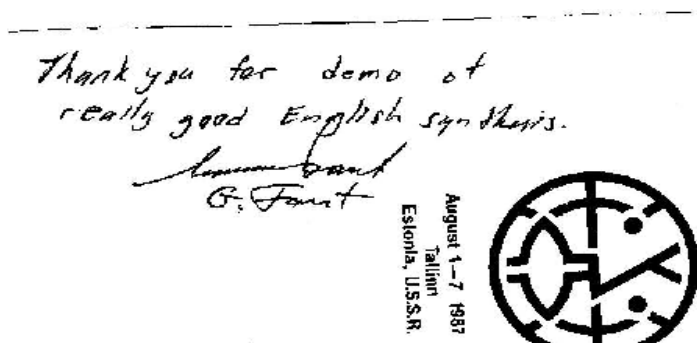 Thank you for demo of
really good English synthesis.
G. Fant
August 1–7 1987
Tallinn
Estonia, U.S.S.R.